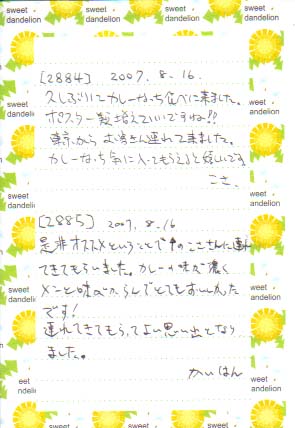 sweet dandelion sweet dandelion sweet dandelion
[2884] 2007. 8. 16.
久しぶりにカレーなっち食べに来ました。
ポスター類増えていいですね!!
東京から お客さん連れて来ました。
カレーなっち気に入ってもらえると嬉しいです。
こさ.
[2885] 2007. 8. 16
是非オススメということで こささんに連れ
てきてもらいました。カレーの味が濃く
とてもおいしかった
です!
連れてきてもらってよい思い出となり
ました。
かいはん
sweet dandelion sweet dandelion sweet dandelion